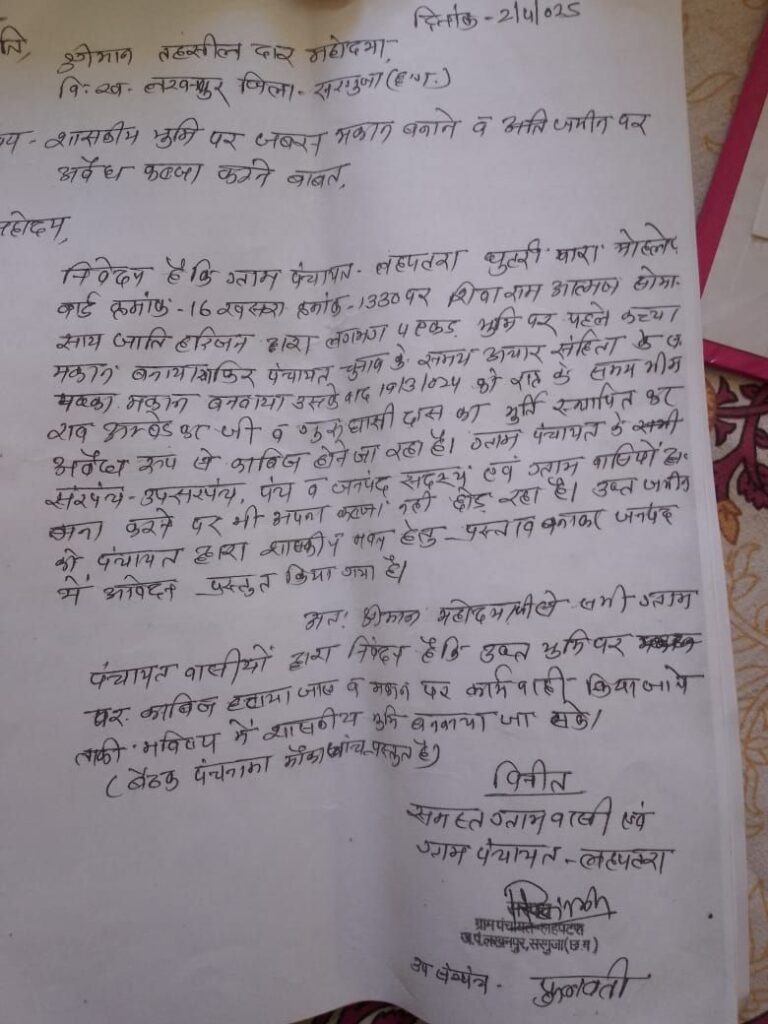 दिनांक - 2/4/025
ति,
श्रीमान तहसील दार महोदया,
वि. ख. लखनपुर जिला - सरगुजा (छ.ग.)
य - शासकीय भूमि पर जबरन मकान बनाने व अति जमीन पर
अवैध कब्जा करने बाबत्,
महोदय,
निवेदन है कि ग्राम पंचायत - लहपटरा पारा
वार्ड क्रमांक - 16 खसरा क्रमांक - 1330 पर शिवा राम आत्मज
साय जाति हरिजन द्वारा लगभग भूमि पर पहले कच्चा
मकान बनाया फिर पंचायत चुनाव के समय आचार संहिता के
पक्का मकान बनवाया उसके बाद 19/3/024 को रात के समय भीम
राव अम्बेडकर जी व गुरु घासी दास का मुर्ति स्थापित कर
अवैध रूप से काबिज होने जा रहा है। ग्राम पंचायत के सभी
सरपंच - उपसरपंच, पंच व जनपद सदस्य एवं ग्राम वासियों द्वा.
मना करने पर भी अपना कब्जा नहीं छोड़ रहा है। उक्त जमीन
को पंचायत द्वारा शासकीय भवन हेतु प्रस्ताव बनाकर जनपद
में आवेदन प्रस्तुत किया गया है।
अतः श्रीमान महोदया जी से सभी ग्राम
पंचायत वासीयों द्वारा निवेदन है कि उक्त भूमि पर
पर काबिज हटाया जाए व मकान पर कार्यवाही किया जाये
ताकी भविष्य में शासकीय भूमि बनवाया जा सके।
(बैठक पंचनामा मौका जांच प्रस्तुत है)
विनीत
समस्त ग्राम वासी एवं
ग्राम पंचायत - लहपटरा
सरपंच
ग्राम पंचायत-लहपटरा
ज.पं.लखनपुर,सरगुजा(छ.ग)
उप सरपंच - फुलवती